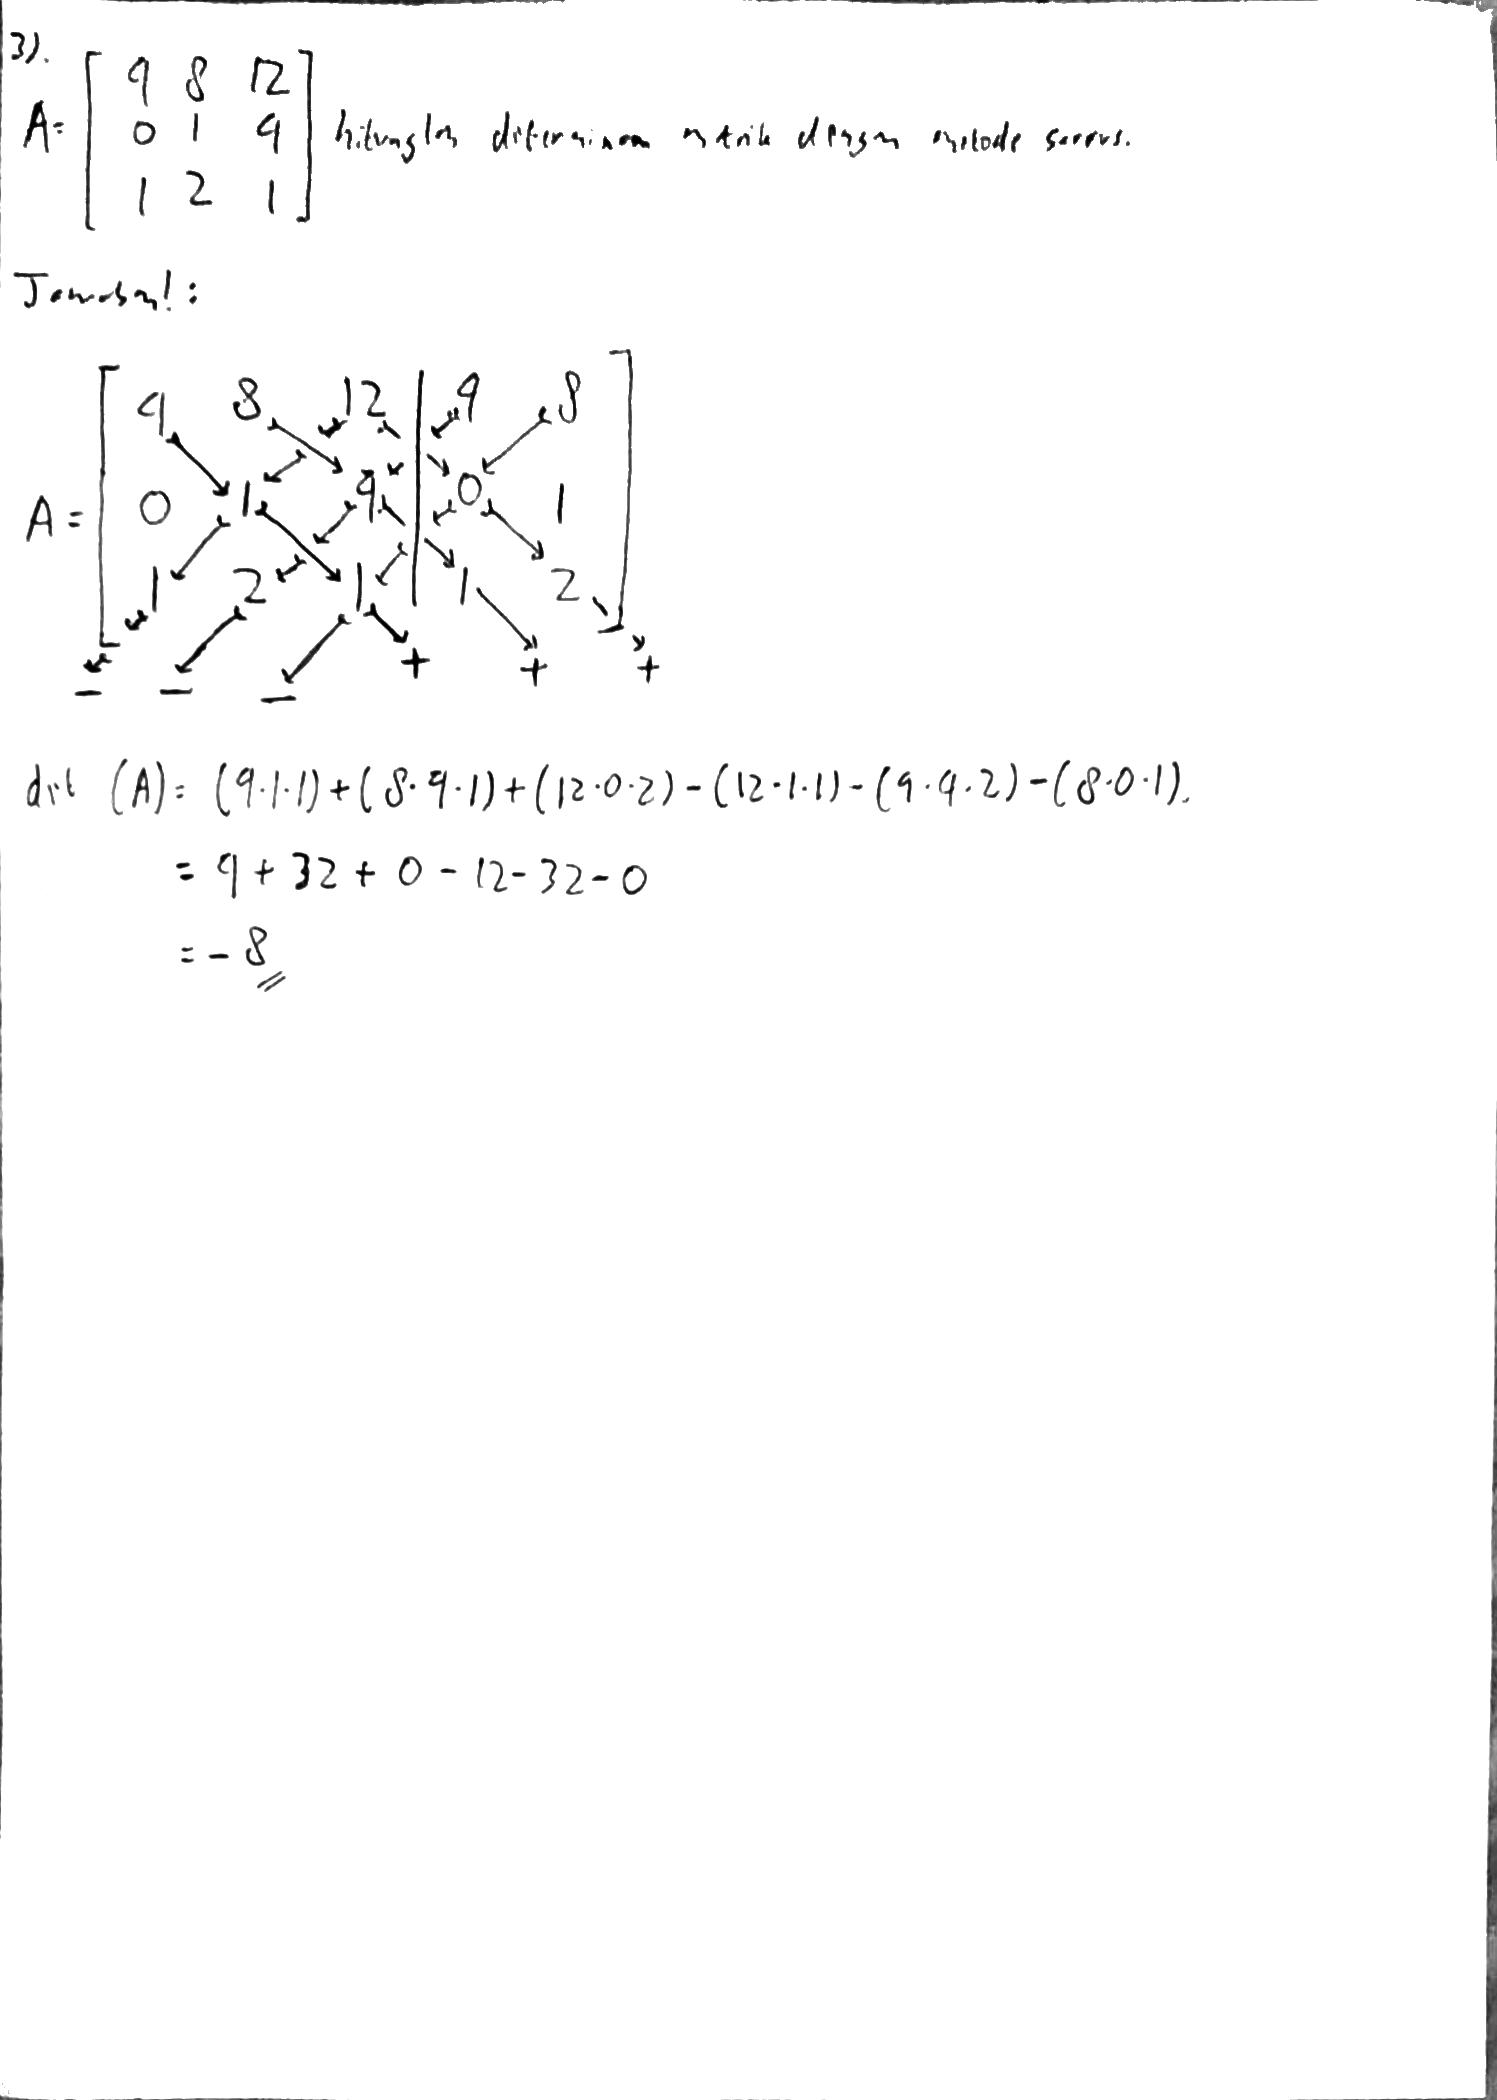 3).
A = [ 4 8 12
0 1 4
1 2 1 ] hitunglah determinan matrik dengan metode sarrus.
Jawaban! :
A = [ 4 8 12 | 4 8
0 1 4 | 0 1
1 2 1 | 1 2 ]
− − − + + +
det (A) = (4·1·1)+(8·4·1)+(12·0·2)-(12·1·1)-(4·4·2)-(8·0·1).
= 4 + 32 + 0 - 12 - 32 - 0
= - 8